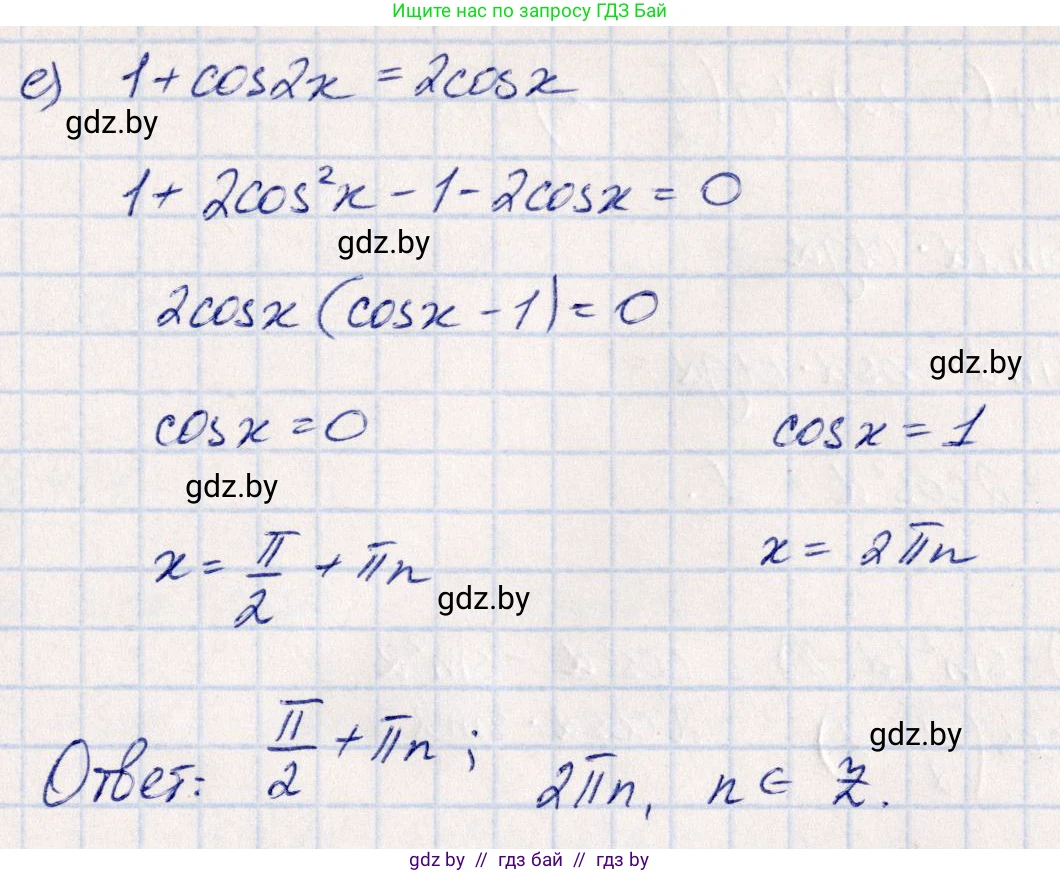 Ищите нас по запросу ГДЗ Бай
е) 1 + cos2x = 2cosx
gdz.by
1 + 2cos²x - 1 - 2cosx = 0
gdz.by
2cosx (cosx - 1) = 0
gdz.by
cosx = 0 cosx = 1
gdz.by
x = π/2 + πn x = 2πn
gdz.by
gdz.by
Ответ: π/2 + πn; 2πn, n ∈ Z.
gdz.by // гдз бай // гдз by